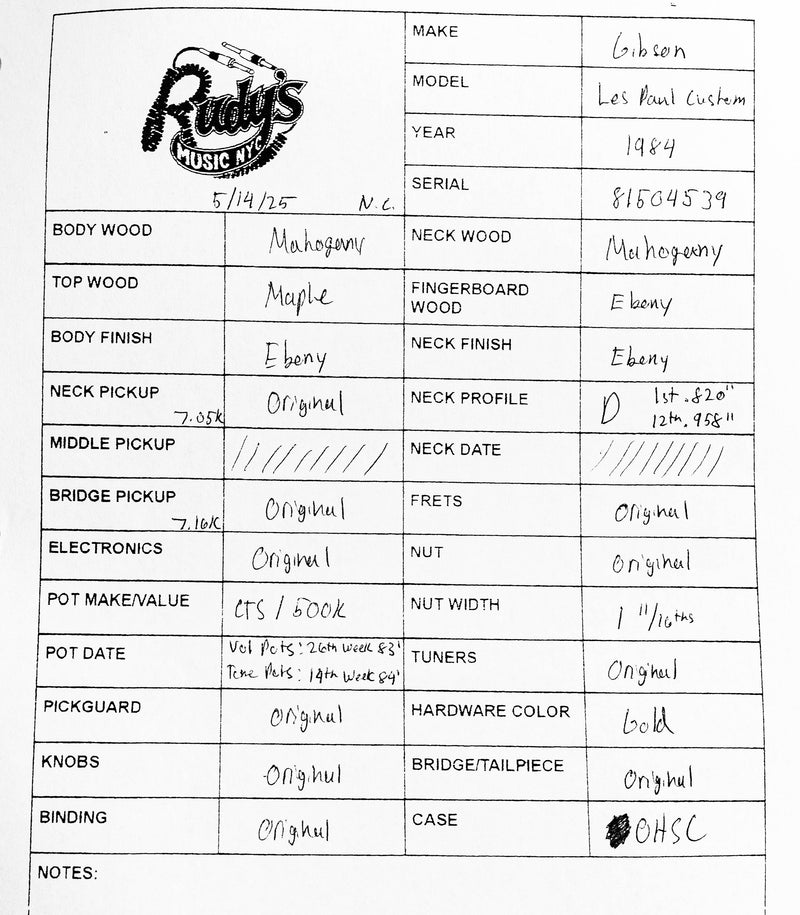 Rudy's
MUSIC NYC
5/14/25 N.C.
MAKE Gibson
MODEL Les Paul Custom
YEAR 1984
SERIAL 81504539
BODY WOOD Mahogany
NECK WOOD Mahogany
TOP WOOD Maple
FINGERBOARD
WOOD Ebony
BODY FINISH Ebony
NECK FINISH Ebony
NECK PICKUP 7.05K Original
NECK PROFILE D 1st .820"
12th .958"
MIDDLE PICKUP
NECK DATE
BRIDGE PICKUP 7.16K Original
FRETS Original
ELECTRONICS Original
NUT Original
POT MAKE/VALUE CTS / 500K
NUT WIDTH 1 11/16ths
POT DATE Vol Pots: 26th Week 83'
Tone Pots: 14th Week 84'
TUNERS Original
PICKGUARD Original
HARDWARE COLOR Gold
KNOBS Original
BRIDGE/TAILPIECE Original
BINDING Original
CASE OHSC
NOTES: